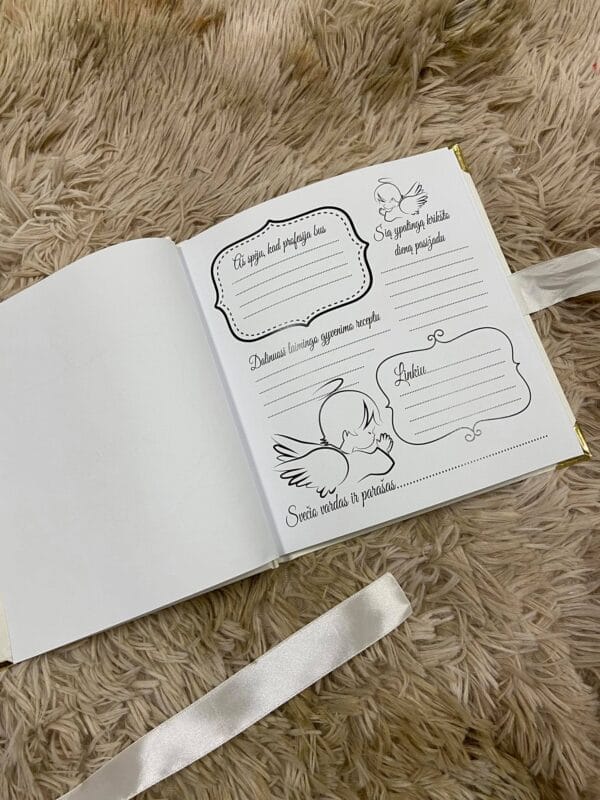 Aš spėju, kad profesija bus
Šią ypatingą krikšto
dieną pasižadu
Dalinuosi laimingo gyvenimo receptu
Linkiu
Svečio vardas ir parašas